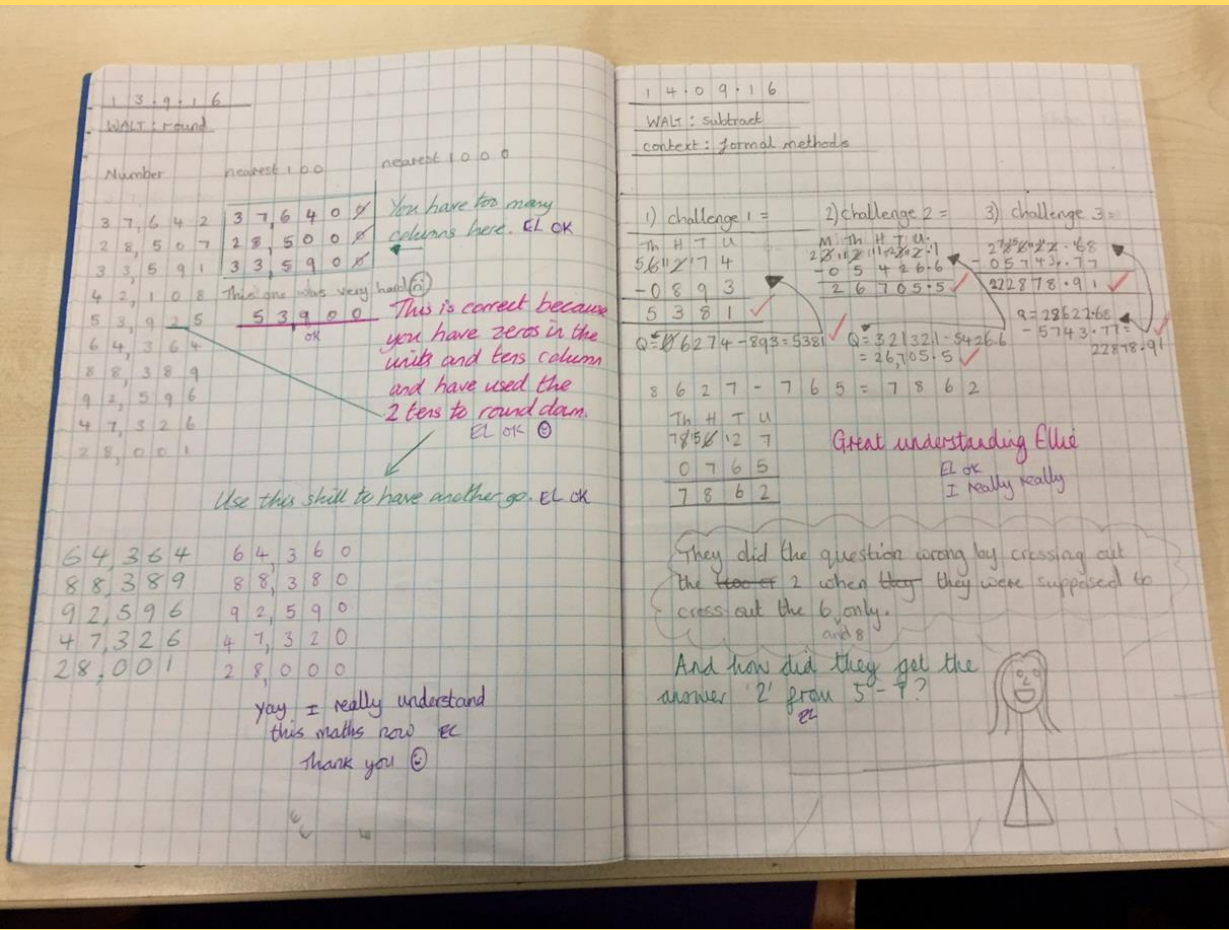 13.9.16
WALT: round
Number nearest 100 nearest 1000
37,642 37,6400
28,507 28,5000
33,591 33,5900
You have too many
columns here. EL OK
42,108 This one was very hard
53,925 53,900
ok
64,364
88,389
92,596
47,326
28,001
This is correct because
you have zeros in the
units and tens column
and have used the
2 tens to round down.
EL OK
Use this skill to have another go. EL OK
64,364 64,360
88,389 88,380
92,596 92,590
47,326 47,320
28,001 28,000
yay I really understand
this maths now EL
Thank you
14.09.16
WALT: subtract
context: formal methods
1) challenge 1 =
Th H T U
-0893
5381
Q= 6274-893=5381
2) challenge 2 =
M Th H T U
-05426.6
26705.5
= 26,705.5
3) challenge 3 =
-05743.77
222878.91
Q=28622.68
-5743.77=
22878.91
8627-765=7862
Th H T U
0765
7862
Great understanding Ellie
EL OK
I really really
They did the question wrong by crossing out
the 2 when they they were supposed to
cross out the 6 only.
and 8
And how did they get the
answer '2' from 5-7?
EL